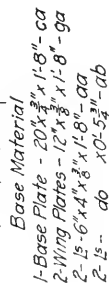 Base Material
1-Base Plate - 20"x¾"x1'-8"-ca
2-Wing Plates - 12"x⅜"x1'-8"-ga
2-Ls-6"x4"x⅜"x1'-8"-aa
2-Ls- do x0'-5¾"-ab